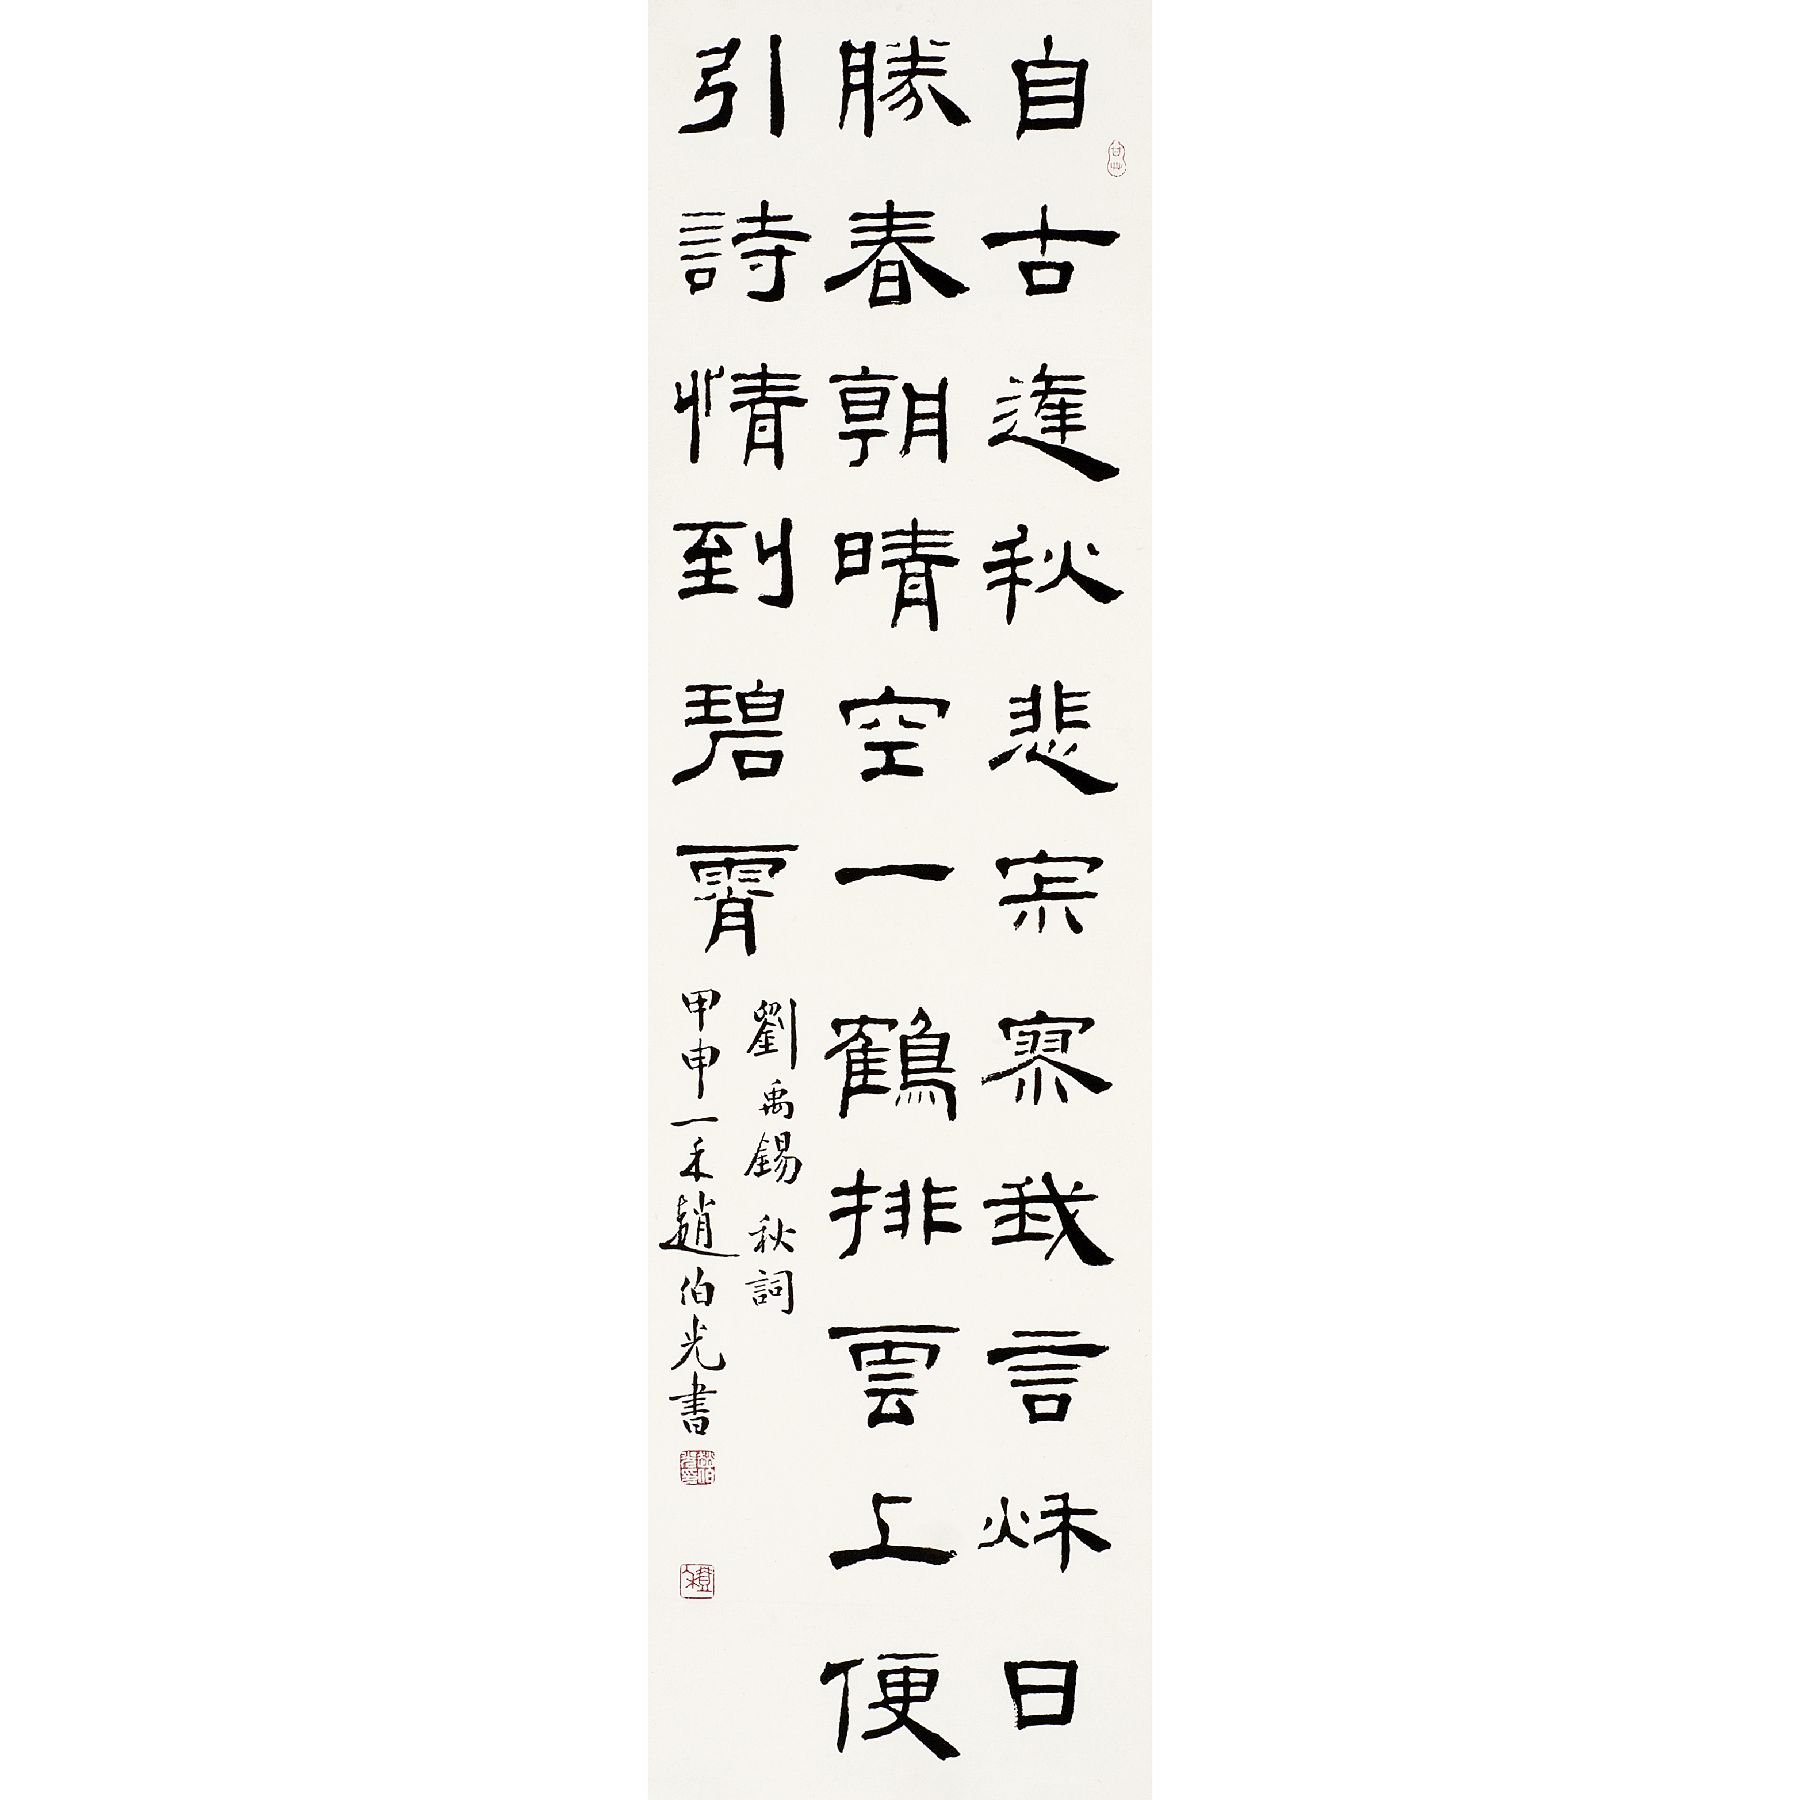 自古逢秋悲寂寥我言秌日
勝春朝晴空一鶴排雲上便
引詩情到碧霄
劉禹錫 秋詞
甲申一禾趙伯光書